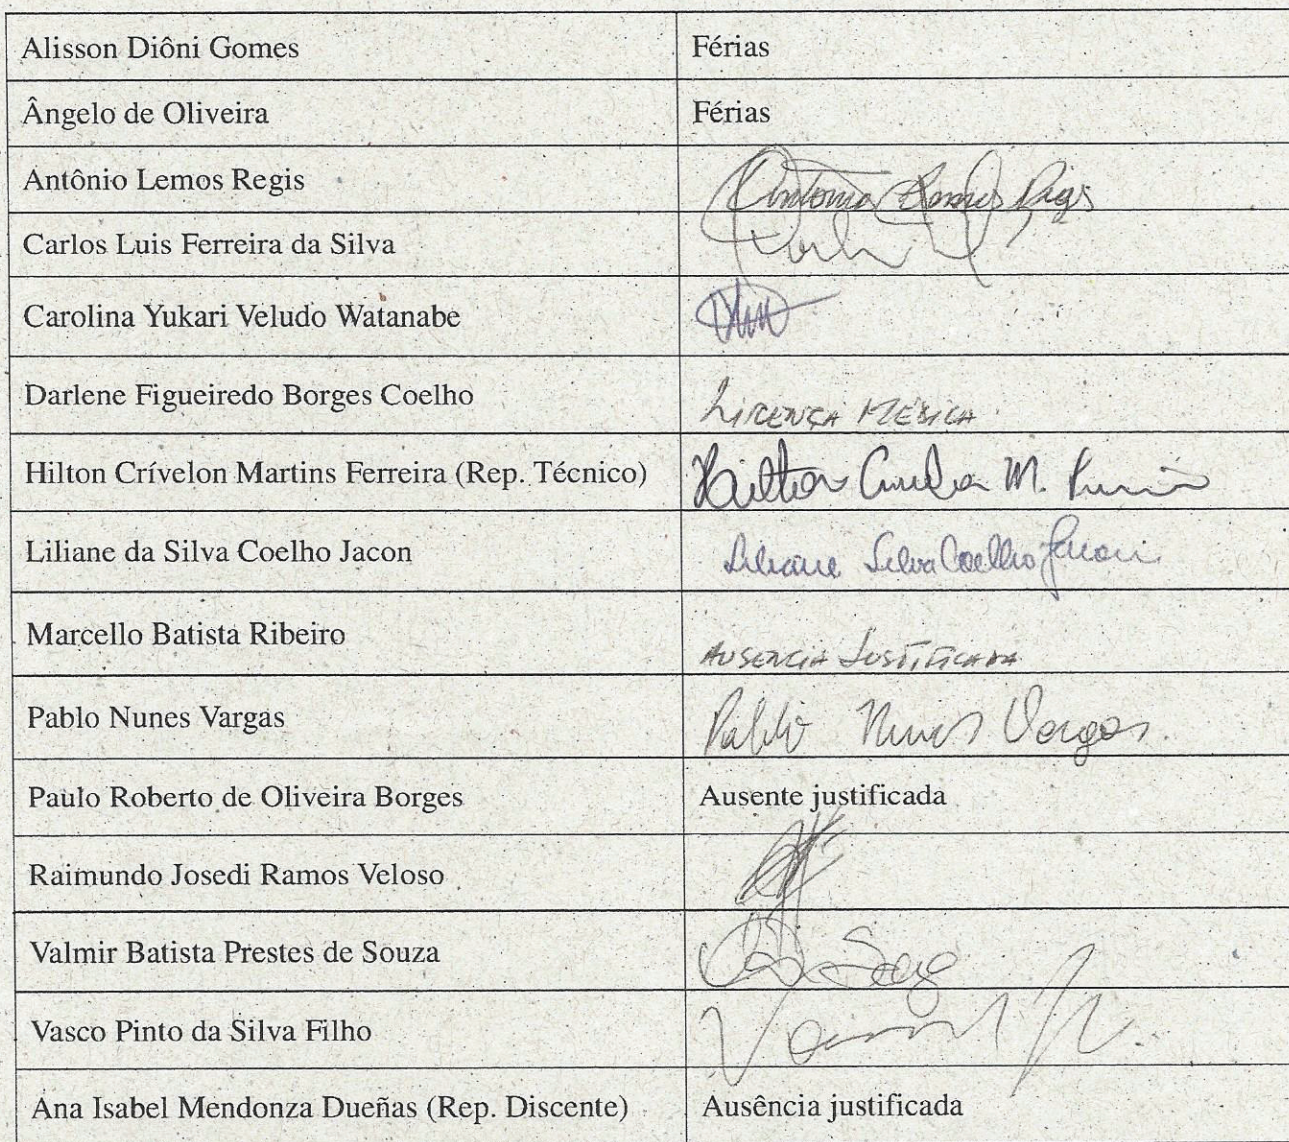 Alisson Diôni Gomes Férias
Ângelo de Oliveira Férias
Antônio Lemos Regis Antonio Lemos Regis
Carlos Luis Ferreira da Silva
Carolina Yukari Veludo Watanabe
Darlene Figueiredo Borges Coelho LICENÇA MÉDICA
Hilton Crívelon Martins Ferreira (Rep. Técnico) Hilton M.
Liliane da Silva Coelho Jacon Liliane Silva Coelho Jacon
Marcello Batista Ribeiro AUSENCIA JUSTIFICADA
Pablo Nunes Vargas Pablo Nunes Vargas
Paulo Roberto de Oliveira Borges Ausente justificada
Raimundo Josedi Ramos Veloso
Valmir Batista Prestes de Souza
Vasco Pinto da Silva Filho
Ana Isabel Mendonza Dueñas (Rep. Discente) Ausência justificada